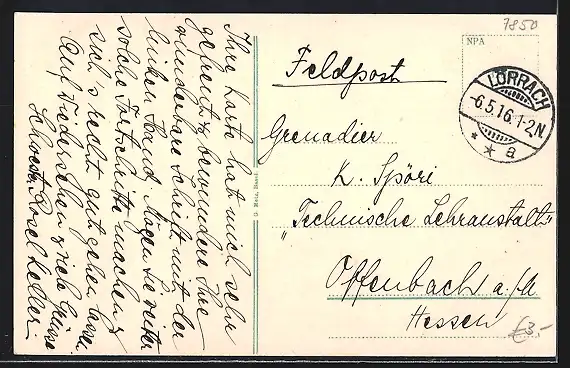 Ihre Karte hat mich sehr
gefreut & bewundere Ihre
wunderbare Schrift mit der
linken Hand. Mögen Sie weiter
solche Fortschritte machen &
sich's recht gut gehen lassen.
Auf Wiedersehen & viele Grüsse
Schwester Rosel Keller.
7850
NPA
Feldpost
LÖRRACH
-6.5.16.1-2N.
* * a
Grenadier
K. Spöri
"Technische Lehranstalt"
Offenbach a/M
Hessen
G. Metz, Basel.
€3.-